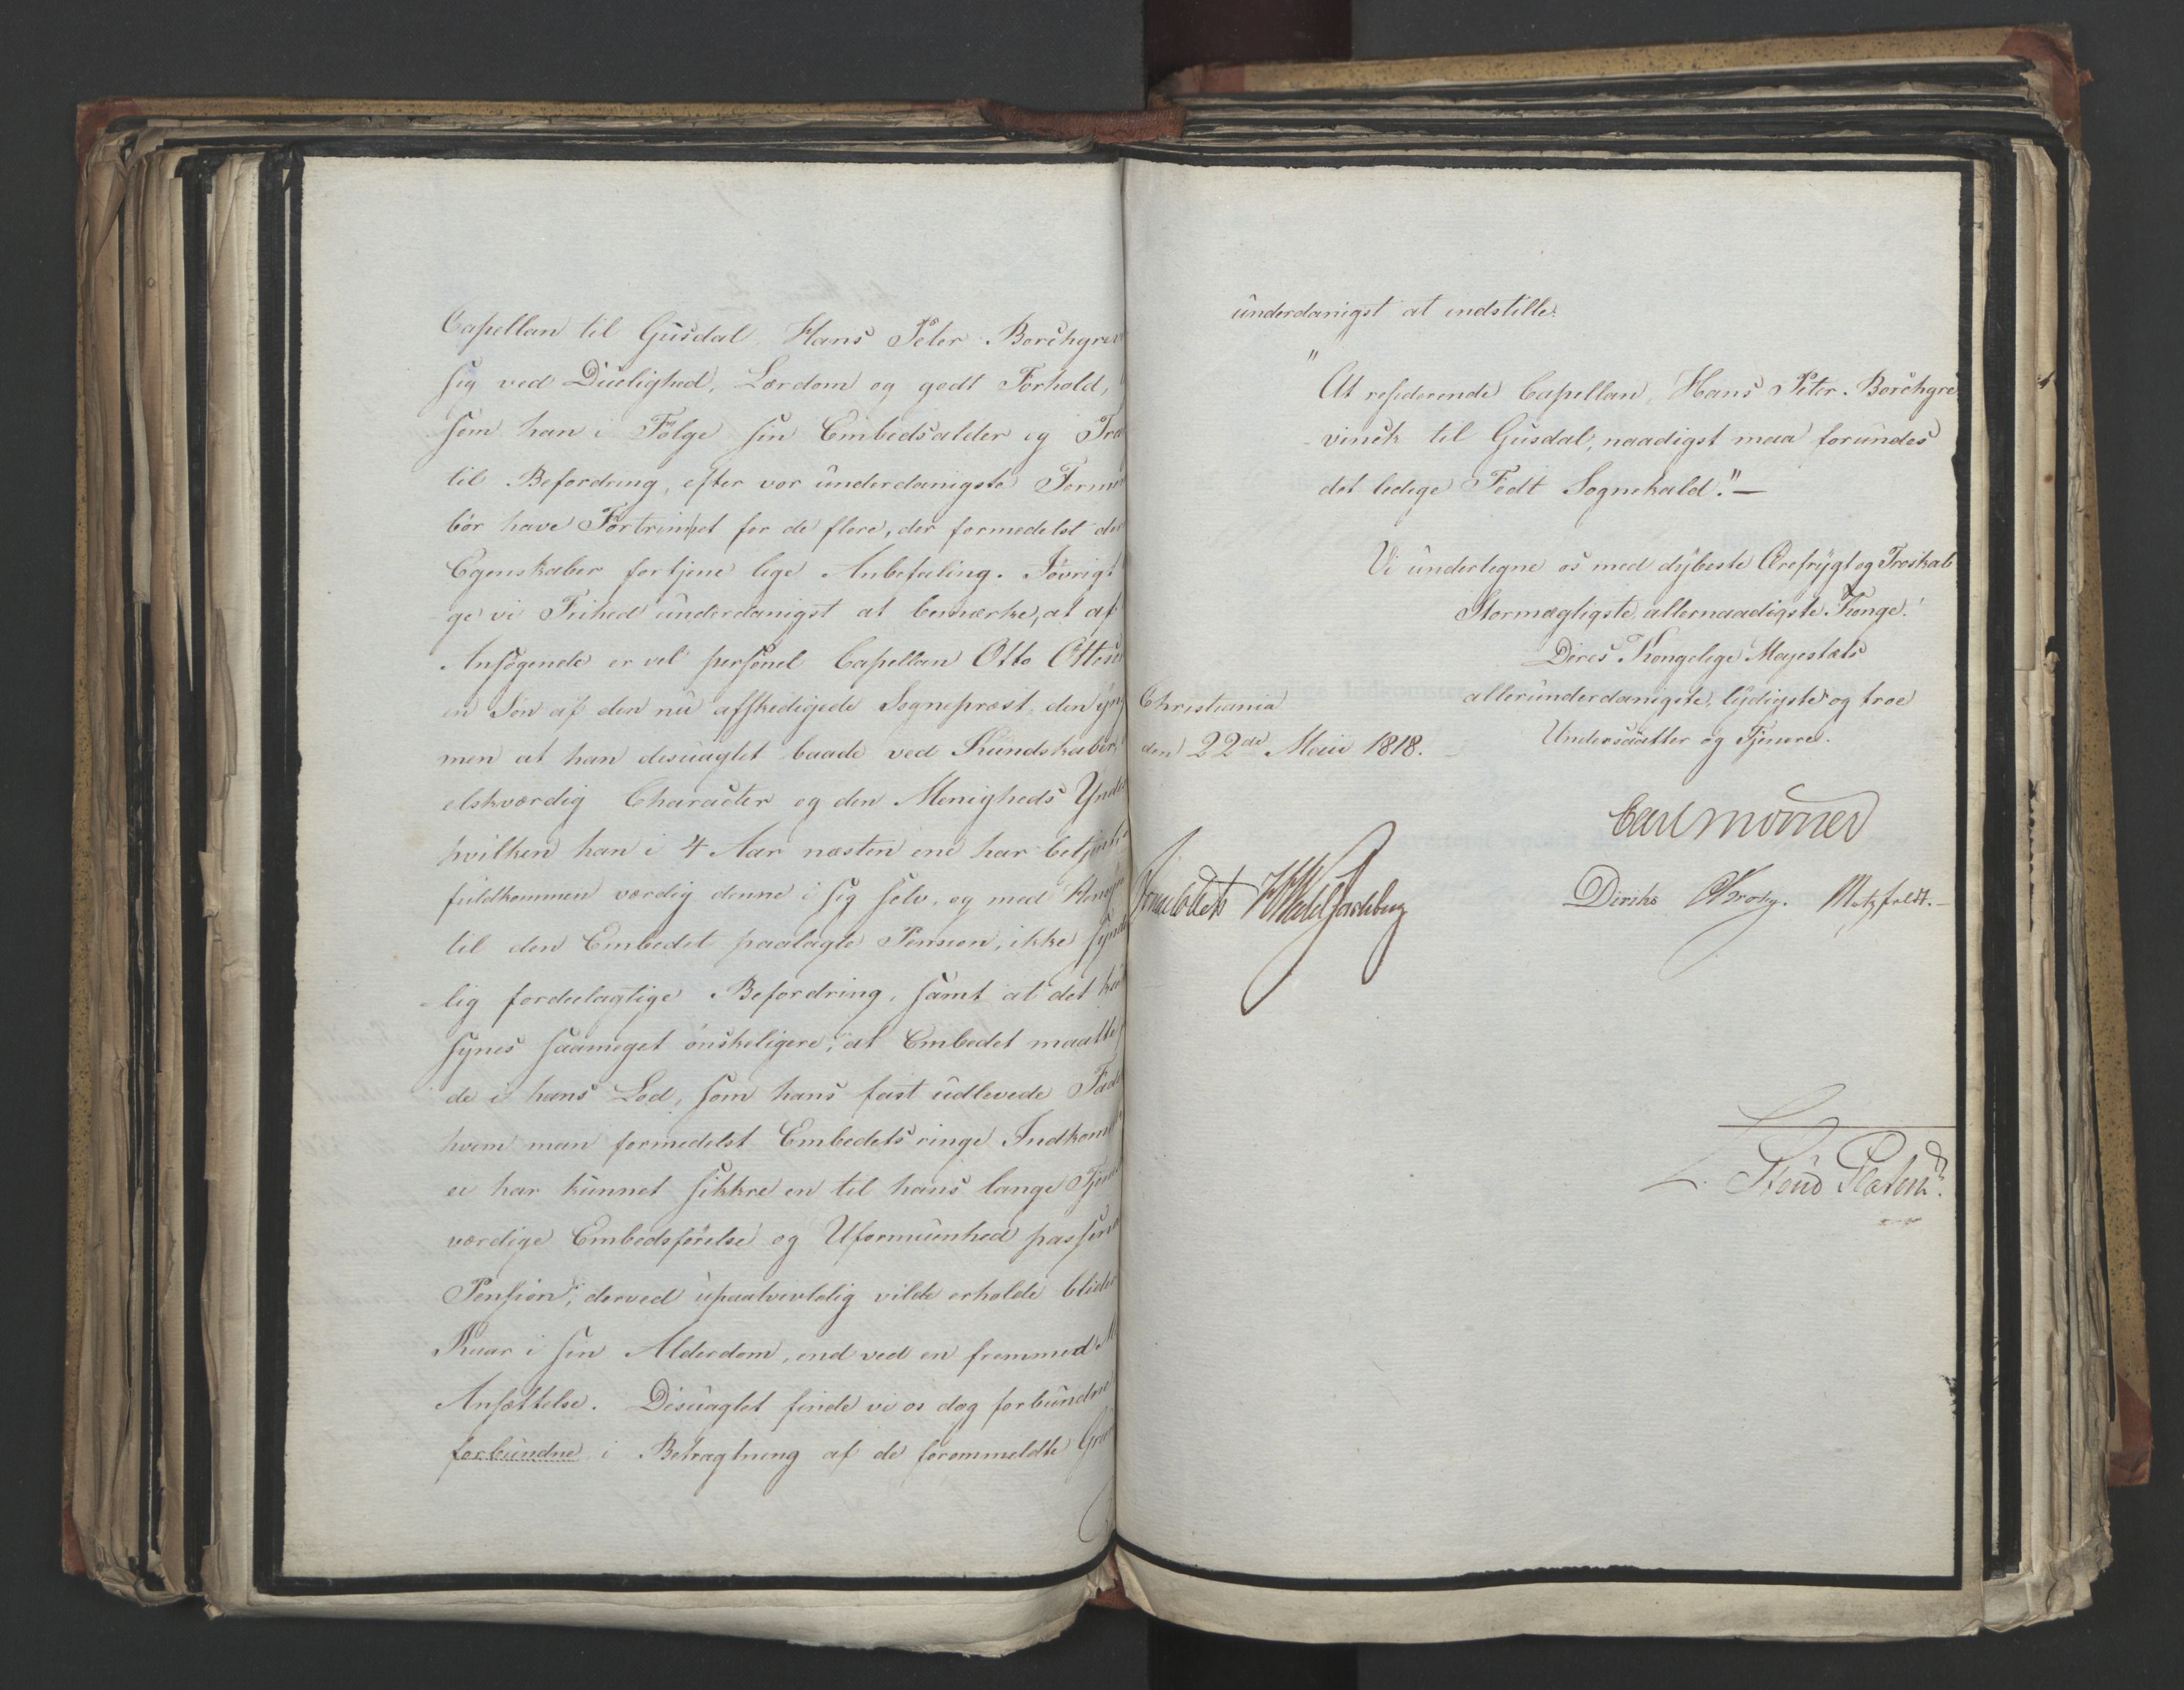 Capellan til Gusdal, Hans Peter Borchgrev
sig ved Duelighed, Lærdom og godt Forhold,
som han i Følge sin Embedsalder og Tra
til Befordring, efter vor underdanigste Forme
bør have Fortrinnet for de flere, der formedelst de
Egenskaber fortjene lige Anbefaling. Iøvrigt
ge vi Frihed underdanigst at bemærke, at af
Ansøgende er vel personel Capellan Otto Ottesen
en Søn af den nu afskedigede Sognepræst, den yng
men at han desuagtet baade ved Kundskaber,
elskværdig Character og den Menigheds Ynde
hvilken han i 4 Aar næsten ene har betjent
fuldkommen værdig denne i sig selv, og med Hensy
til den Embedet paalagte Pension, ikke synder
lig fordeelagtige Befordring, samt at det
synes saameget ønskeligere, at Embedet maatte
de i hans Lod, som hans fast udlevede Fade
hvem man formedelst Embedets ringe Indkoms
ei har kunnet sikkre en til hans lange Tjene
værdige Embedsførelse og Uformuenhed passen
Pension, derved upaatvivlelig vilde erholde blider
Kaar i sin Alderdom, end ved en fremmed M
Ansættelse. Desuagtet finde vi os dog forbundne
forbundne i Betragtning af de forommeldte Gru
underdanigst at indstille:
"At residerende Capellan, Hans Peter Borchgre
vinck til Gusdal, naadigst maa forundes
det ledige Tiedt Sognekald." —
Vi undertegne os med dybeste Ærefrygt og Troskab
Stormægtigste, allernaadigste Konge!
Deres Kongelige Majestæts
allerunderdanigste, lydigste og troe
Undersaatter og Tjenere.
Christiania
den 22de Maii 1818.
Carl Mörner
Sommerfeldt HWedel Jarlsberg
Diriks CKrohg. Motzfeldt.